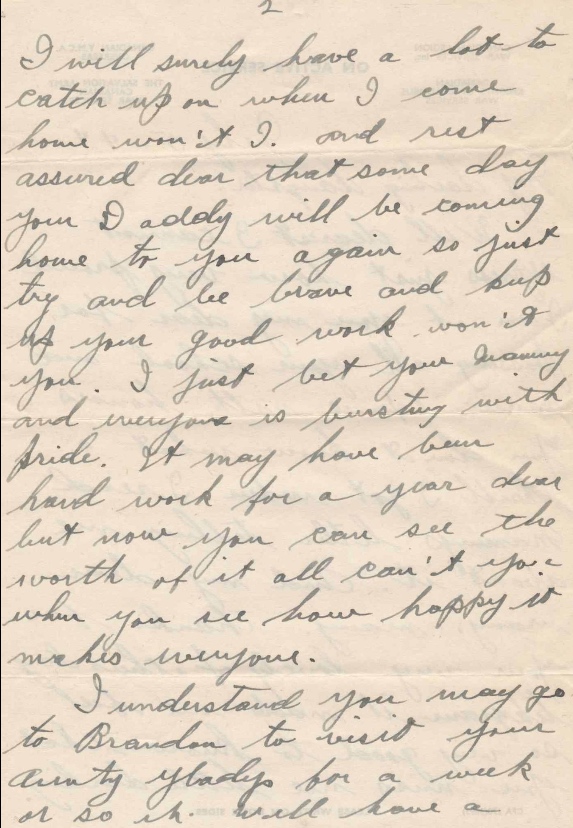 2
I will surely have a lot to
catch up on when I come
home won't I. and rest
assured dear that some day
your Daddy will be coming
home to you again so just
try and be brave and keep
up your good work won't
you. I just bet your Mammy
and everyone is bursting with
pride. It may have been
hard work for a year dear
but now you can see the
worth of it all can't you
when you see how happy it
makes everyone.
I understand you may go
to Brandon to visit your
aunty Gladys for a week
or so it will have a
ON ACTIVE SERVICE